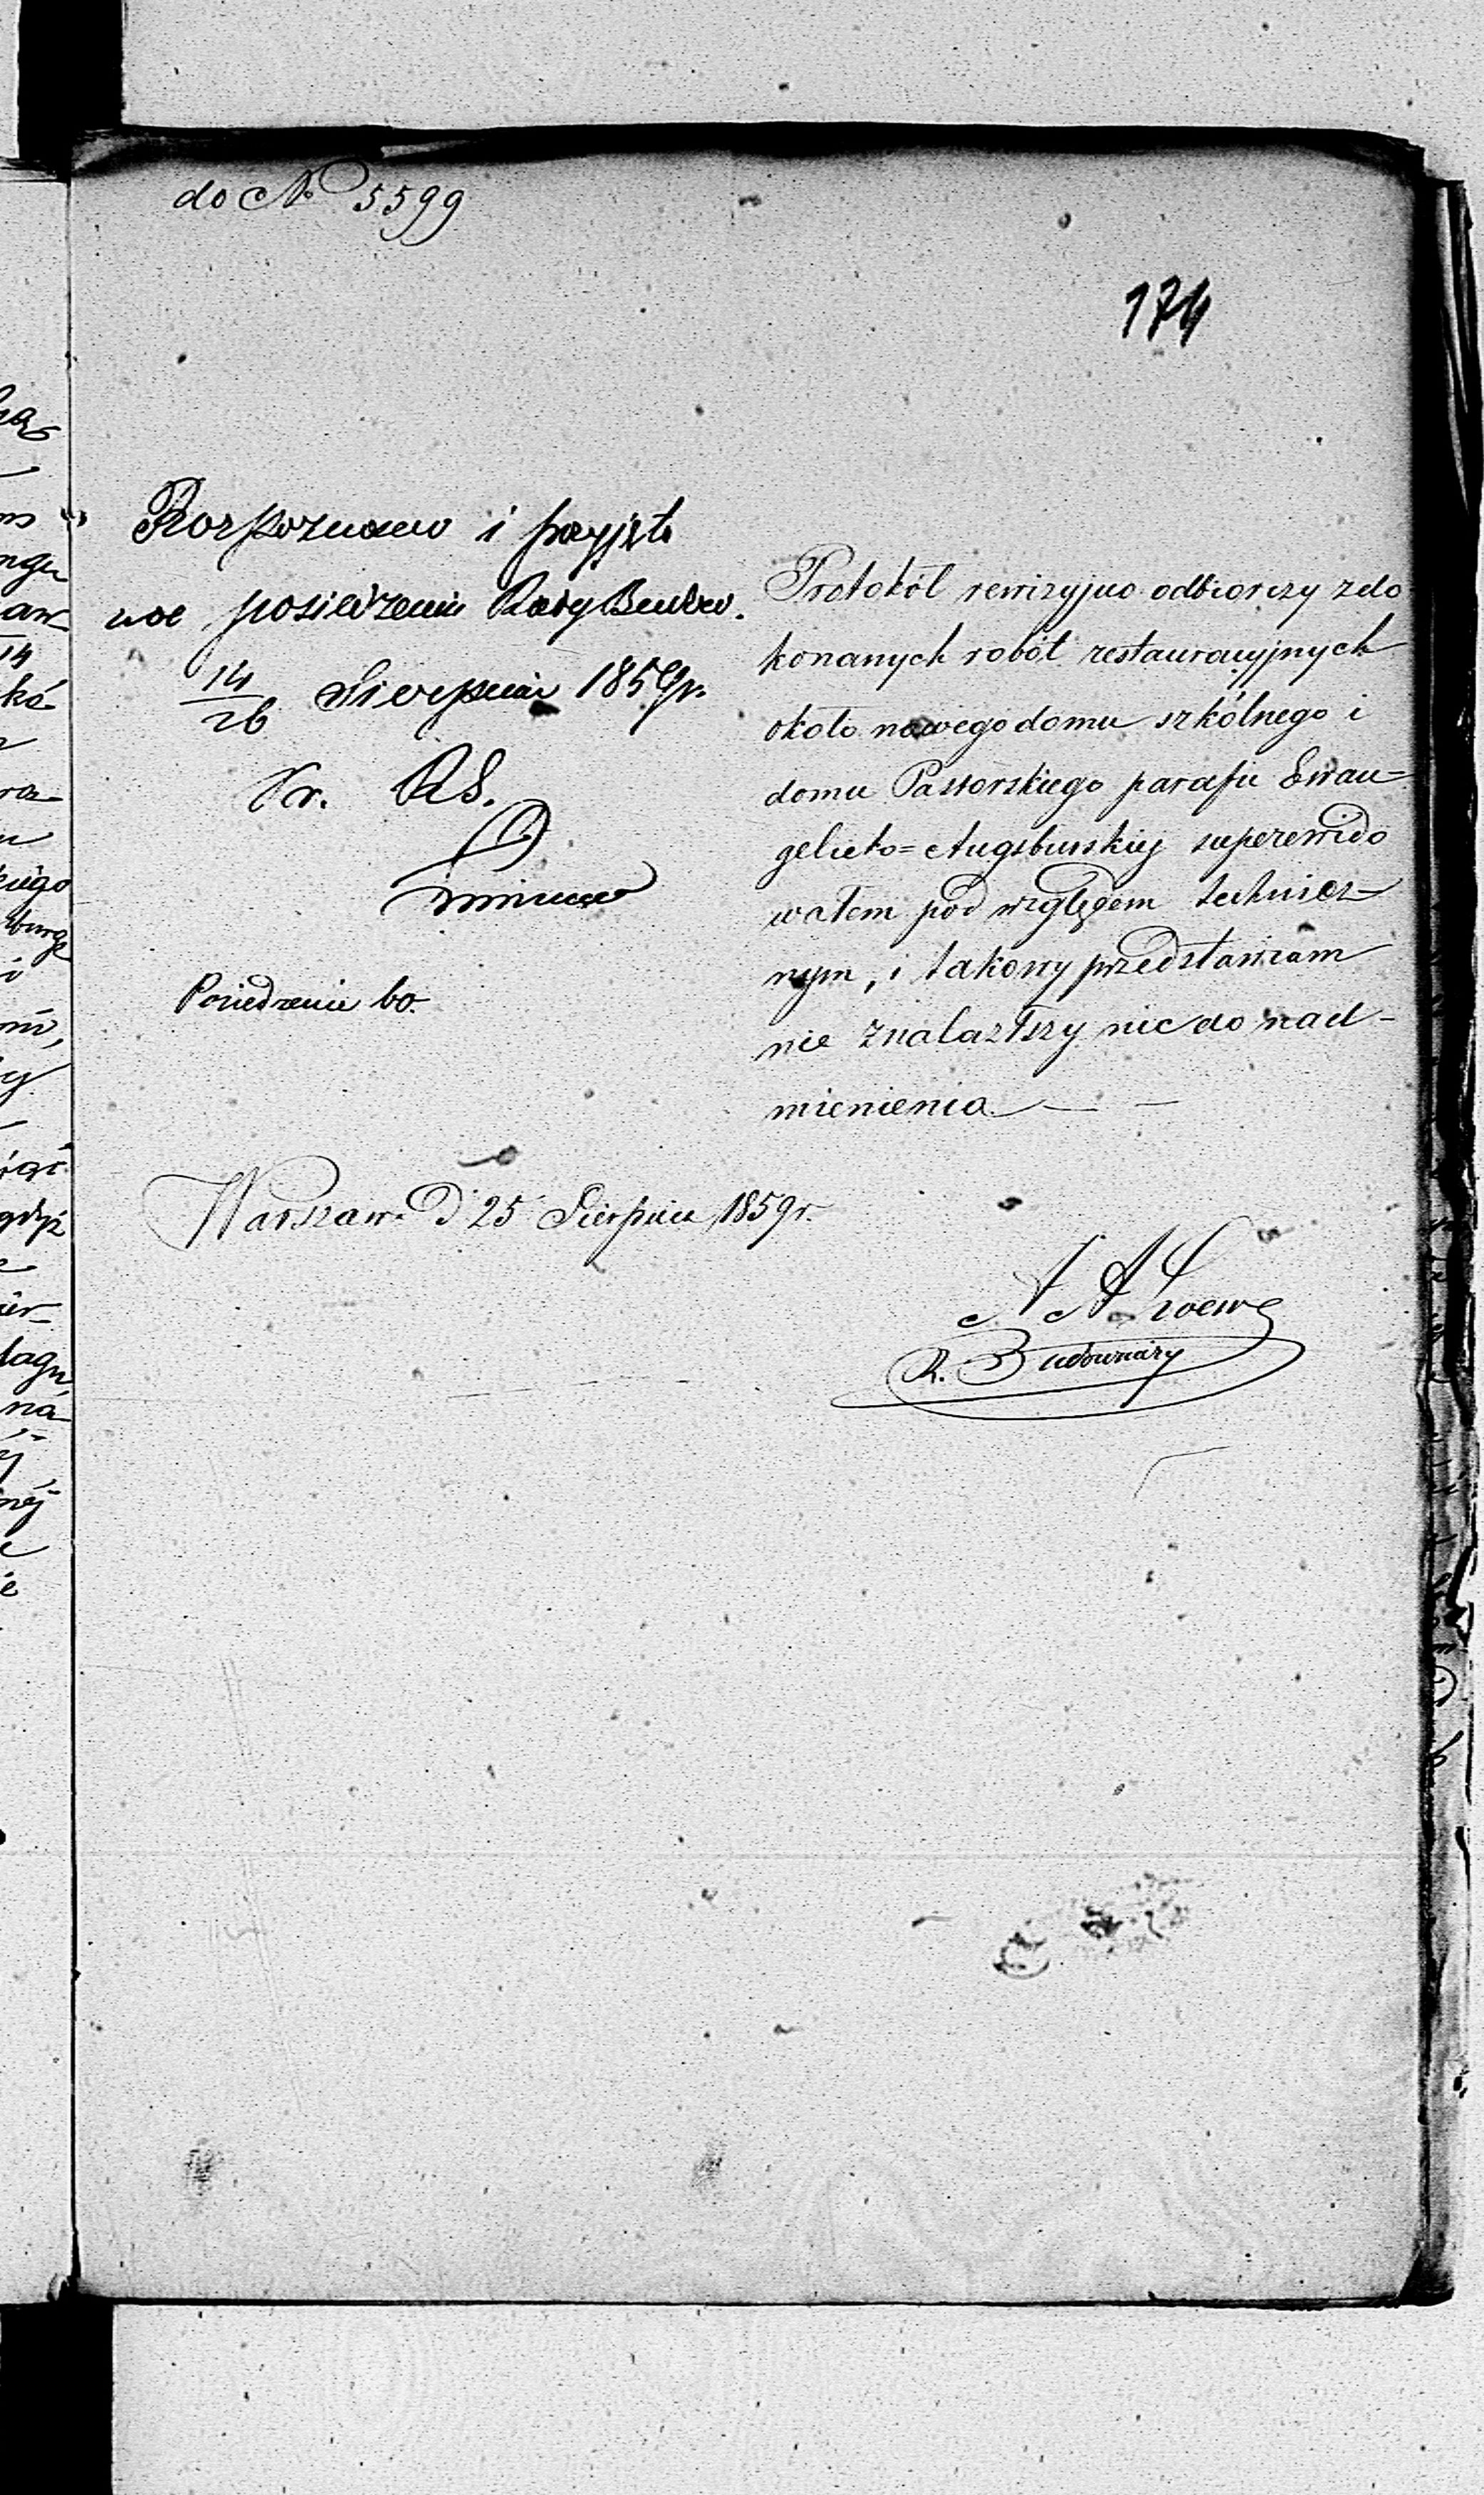 do № 5599
174
Rozpoznano i przyjęto
na posiedzeniu Rady Budow.
14/26 Sierpnia 1859 r.
RS.
Posiedzenie 60.
Protokół rewizyjno odbiorczy z do
konanych robót restauracyjnych
około nowego domu szkólnego i
domu Pastorskiego parafii Ewan=
gelicko=Augsburskiej superewido
wałem pod względem technicz-
nym, i takowy przedstawiam
nie znalazłszy nic do nad-
mienienia
Warszawa D 25 Sierpnia 1859 r.
A A Loewe
R. Budowniczy